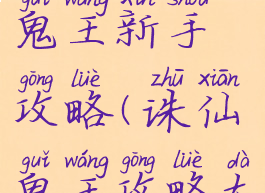 guǐ wáng xīn shǒu
鬼王新手
gōng lüè zhū xiān
攻略(诛仙
guǐ wáng gōng lüè dà
鬼王攻略大